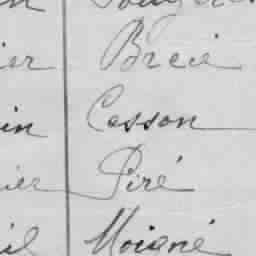 ier Brece
in Cesson
ier Piré
il Moigné